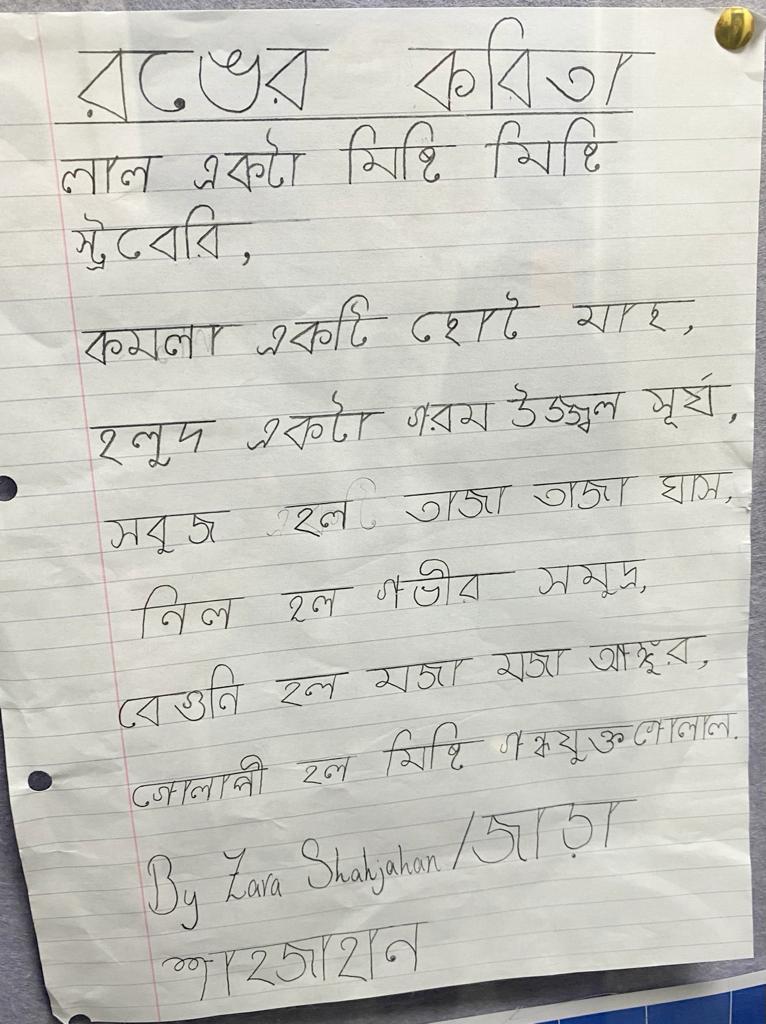 রঙের কবিতা
লাল একটা মিষ্টি মিষ্টি
স্ট্রবেরি,
কমলা একটি ছোট মাছ,
হলুদ একটা গরম উজ্জ্বল সূর্য,
সবুজ হল তাজা তাজা ঘাস,
নিল হল গভীর সমুদ্র,
বেগুনি হল মজা মজা আঙ্গুর,
গোলাপী হল মিষ্টি গন্ধযুক্ত গোলাপ.
By Zara Shahjahan/জাড়া
শাহজাহান